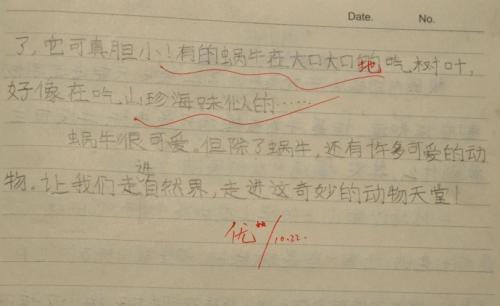 Date. No.
了,它可真胆小!有的蜗牛在大口大口地吃树叶,
好像在吃山珍海味似的……
蜗牛很可爱。但除了蜗牛,还有许多可爱的动
物。让我们走进自然界,走进这奇妙的动物天堂!
优 10.22.